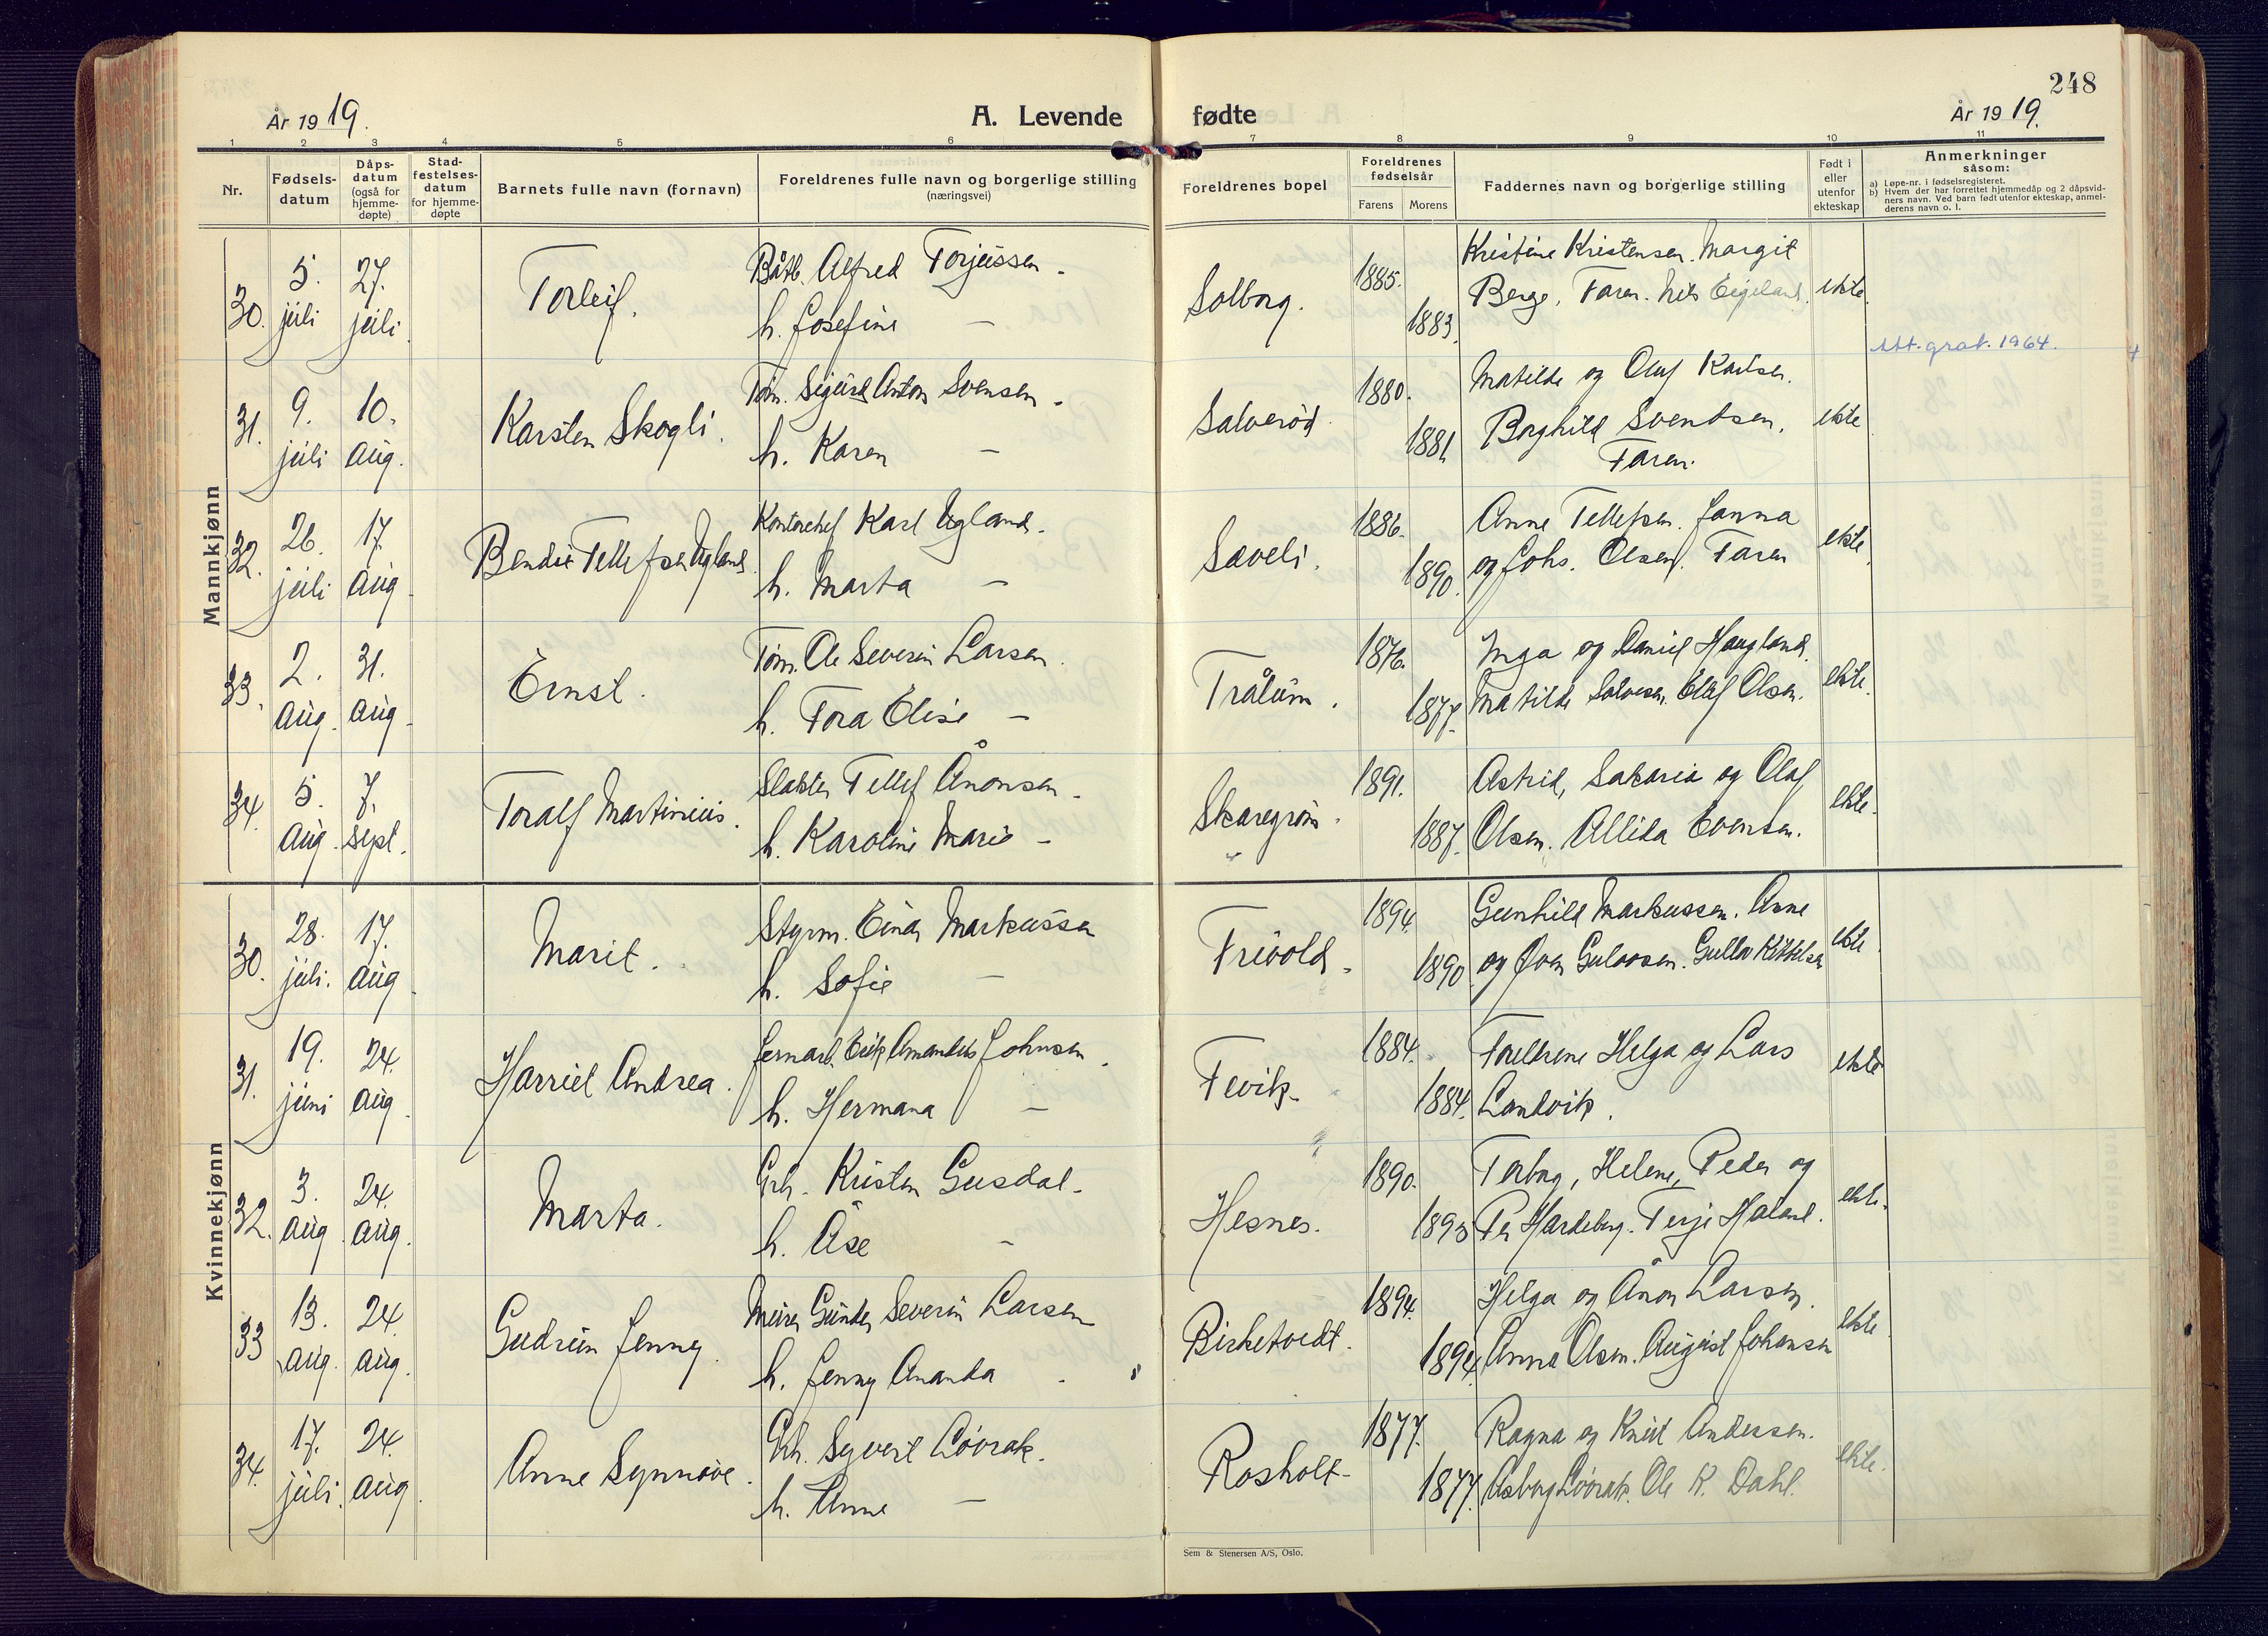 248
År 1919.
A. Levende fødte
År 1919.
1 2 3 4 5 6 7 8 9 10 11
Nr.
Fødsels-
datum
Dåps-
datum
(også for
hjemme-
døpte)
Stad-
festelses-
datum
for hjemme-
døpte
Barnets fulle navn (fornavn)
Foreldrenes fulle navn og borgerlige stilling
(næringsvei)
Foreldrenes bopel
Foreldrenes
fødselsår
Farens Morens
Faddernes navn og borgerlige stilling
Født i
eller
utenfor
ekteskap
Anmerkninger
såsom:
a) Løpe-nr. i fødselsregisteret.
b) Hvem der har forrettet hjemmedåp og 2 dåpsvid-
ners navn. Ved barn født utenfor ekteskap, anmel-
derens navn o. l.
Mannkjønn
30. 5. juli 27. juli
Torleif.
Båtb. Alfred Torjussen -
h. Josefine —
Solborg.
1885.
1883.
Kristine Kristensen. Margit
Berge, Faren. Nils Eigeland.
ekte.
Att. grat. 1964.
31. 9. juli 10. Aug.
Karsten Skogli.
Tøm. Sigurd Anton Svensen -
h. Karen —
Salverød
1880.
1881.
Matilde og Oluf Karlsen.
Borghild Svendsen.
Faren.
ekte
32. 26. juli 17. Aug.
Bendix Tellefsen Ugland
Kontorchef Karl Ugland.
h. Marta —
Sæveli.
1886.
1890.
Anne Tellefsen. Janna
og Johs. Olsen. Faren
ekte.
33. 2. Aug. 31. Aug.
Ernst.
Tøm. Ole Severin Larsen.
h. Tora Elise —
Trålum.
1876.
1877.
Inga og Daniel Haugland.
Matilde Salvesen. Elef Olsen.
ekte.
34. 5. Aug. 7. Sept.
Toralf Martinius.
Slakter Tellef Ånonsen -
h. Karoline Marie -
Skaregrøm.
1891.
1887.
Astrid, Sakaria og Olaf
Olsen. Allida Evensen.
ekte.
Kvinnekjønn
30. 28. juli. 17. Aug.
Marit.
Styrm. Einar Markussen
h. Sofie —
Frivold.
1894.
1890
Gunhild Markussen. Anne
og Øven Gulovsen. Gullov Kittelsen
ekte.
31. 19. juni 24. Aug.
Harriet Andrea.
Jernarb. Erik Amandus Johnsen.
h. Hermana —
Fevik.
1884.
1884.
Foreldrene Helga og Lars
Landvik.
ekte
32. 3. Aug. 24. Aug.
Marta.
Grb. Kristen Gusdal.
h. Åse —
Hesnes.
1890.
1893
Torborg, Helene, Peder og
Per Hardeberg. Terje Haland.
ekte.
33 13. Aug. 24. Aug.
Gudrun Jenny.
Murer Gunder Severin Larsen
h. Jenny Ananda -
Birketvedt.
1894.
1894.
Helga og Ånon Larsen.
Anna Olsen. August Johansen
ekte.
34. 17. juli. 24. Aug.
Anne Synnøve.
Grb. Syvert Løvrak.
h. Anne —
Rosholt.
1877.
1877.
Ragna og Knut Andersen.
Asborg Løvrak. Ole K. Dahl.
ekte.
Sem & Stenersen A/S, Oslo.